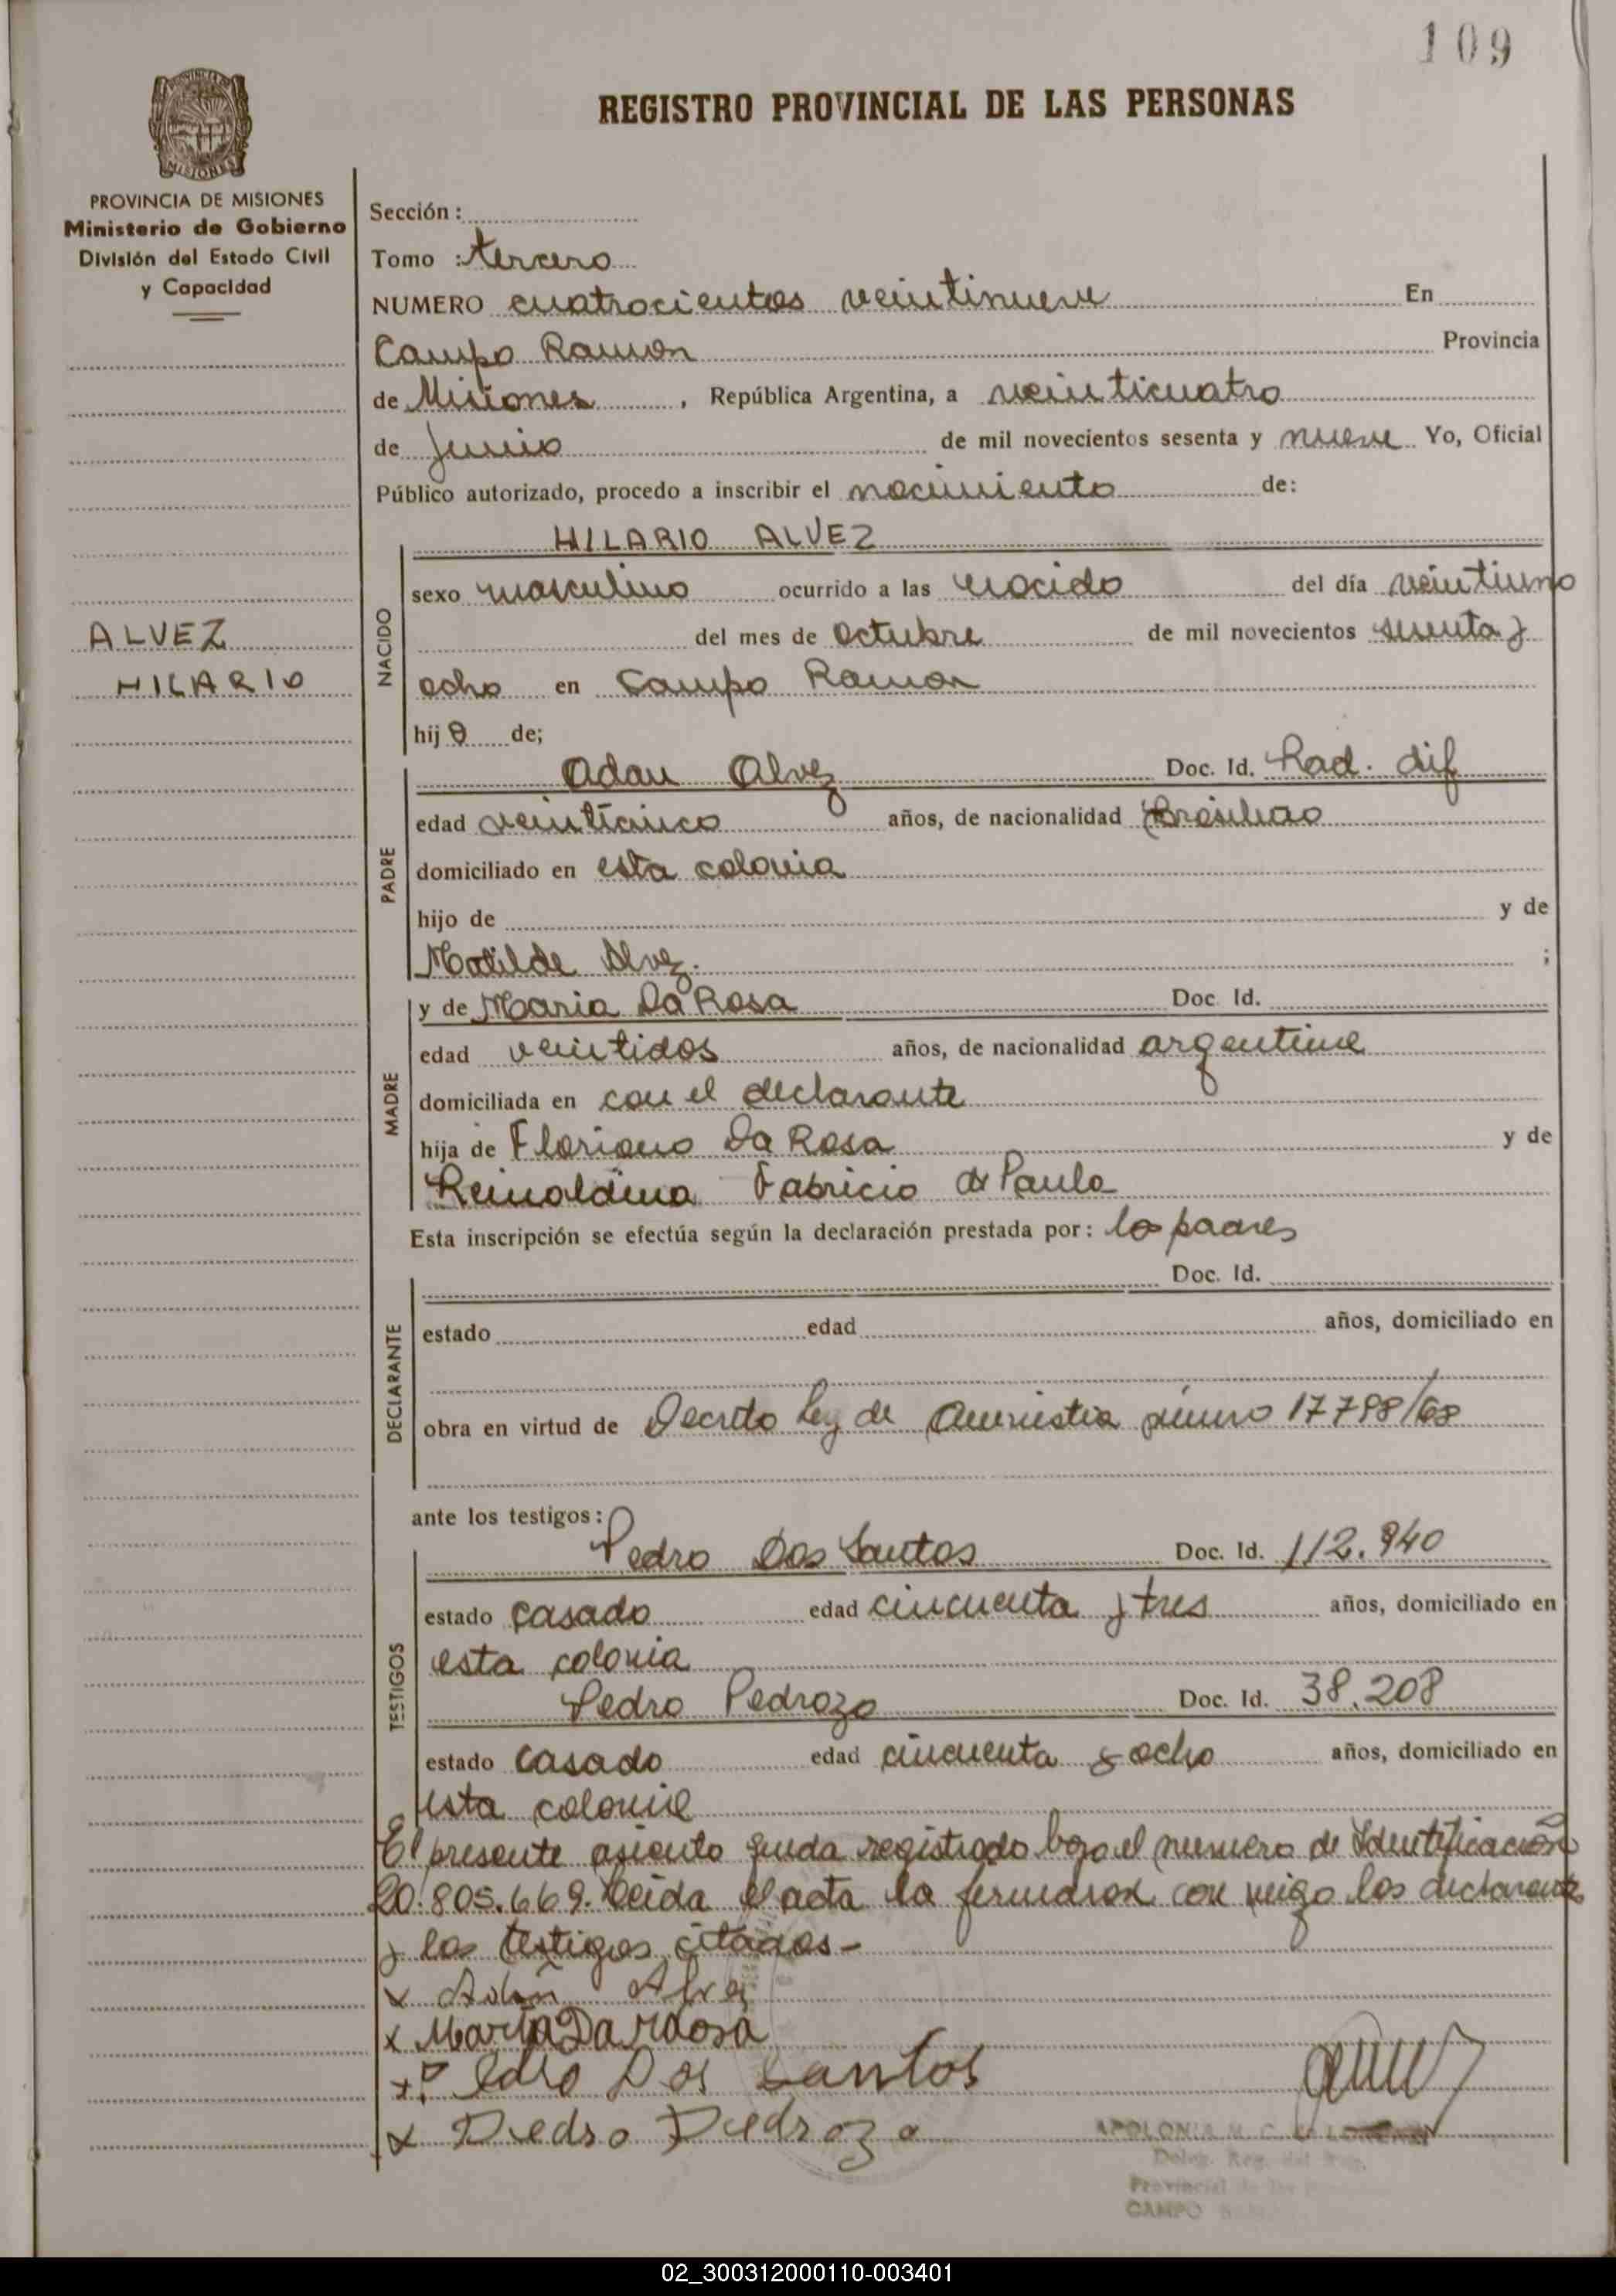 109
REGISTRO PROVINCIAL DE LAS PERSONAS
MISIONES
PROVINCIA DE MISIONES
Ministerio de Gobierno
División del Estado Civil
y Capacidad
ALVEZ
HILARIO
Sección :
Tomo : tercero
NUMERO cuatrocientos veintinueve En
Campo Ramon Provincia
de Misiones , República Argentina, a veinticuatro
de Junio de mil novecientos sesenta y nueve Yo, Oficial
Público autorizado, procedo a inscribir el nacimiento de:
NACIDO
HILARIO ALVEZ
sexo masculino ocurrido a las nacido del día veintiuno
del mes de Octubre de mil novecientos sesenta y
ocho en Campo Ramon
hij o de;
PADRE
Adan Alvez Doc. Id. Rad. dif
edad veinticinco años, de nacionalidad Brasileño
domiciliado en esta colonia
hijo de y de
Matilde Alvez. ;
MADRE
y de Maria Da Rosa Doc. Id.
edad veintidos años, de nacionalidad argentina
domiciliada en con el declarante
hija de Floriano Da Rosa y de
Reinoldina Fabricio de Paula
Esta inscripción se efectúa según la declaración prestada por: los padres
DECLARANTE
Doc. Id.
estado edad años, domiciliado en
obra en virtud de Decreto Ley de Amnistia número 17798/68
ante los testigos:
TESTIGOS
Pedro Dos Santos Doc. Id. 112.940
estado casado edad cincuenta y tres años, domiciliado en
esta colonia
Pedro Pedrozo Doc. Id. 38.208
estado casado edad cincuenta y ocho años, domiciliado en
esta colonia
El presente asiento queda registrado bajo el numero de Identificación
20.805.669. Leida el acta la firmaron con migo los declarantes
y los testigos citados-
x Adan Alvez
x Maria Da Rosa
x Pedro Dos Santos
x Pedro Pedrozo
APOLONIA
Deleg. Reg. del
Provincial de las
CAMPO
02_300312000110-003401